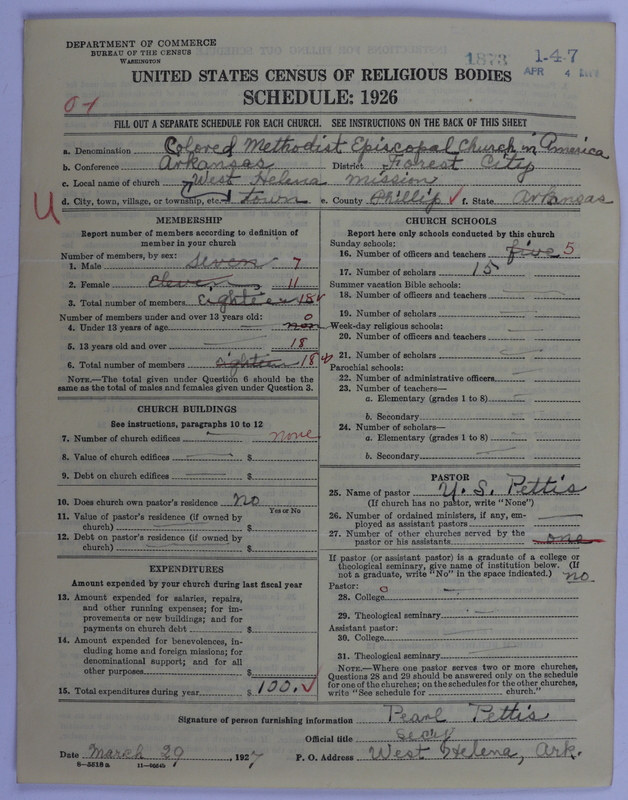 DEPARTMENT OF COMMERCE
BUREAU OF THE CENSUS
WASHINGTON
1873
1-4-7
APR 4
UNITED STATES CENSUS OF RELIGIOUS BODIES
SCHEDULE: 1926
FILL OUT A SEPARATE SCHEDULE FOR EACH CHURCH. SEE INSTRUCTIONS ON THE BACK OF THIS SHEET
a. Denomination Colored Methodist Episcopal Church in America
b. Conference Arkansas District Forest City
c. Local name of church West Helena Mission
U
d. City, town, village, or township, etc. town e. County Phillip f. State Arkansas
MEMBERSHIP
Report number of members according to definition of
member in your church
Number of members, by sex:
1. Male seven 7
2. Female eleven 11
3. Total number of members eighteen 18
Number of members under and over 13 years old:
4. Under 13 years of age non 0
5. 13 years old and over 18
6. Total number of members eighteen 18
NOTE.—The total given under Question 6 should be
same as the total of males and females given under Question 3.
CHURCH BUILDINGS
See instructions, paragraphs 10 to 12
7. Number of church edifices none
8. Value of church edifices $
9. Debt on church edifices $
10. Does church own pastor's residence No
Yes or No
11. Value of pastor's residence (if owned by
church) $
12. Debt on pastor's residence (if owned by
church) $
EXPENDITURES
Amount expended by your church during last fiscal year
13. Amount expended for salaries, repairs,
and other running expenses; for im-
provements or new buildings; and for
payments on church debt $
14. Amount expended for benevolences, in-
cluding home and foreign missions; for
denominational support; and for all
other purposes $
15. Total expenditures during year $ 100.
CHURCH SCHOOLS
Report here only schools conducted by this church
Sunday schools:
16. Number of officers and teachers five 5
17. Number of scholars 15
Summer vacation Bible schools:
18. Number of officers and teachers
19. Number of scholars
Week-day religious schools:
20. Number of officers and teachers
21. Number of scholars
Parochial schools:
22. Number of administrative officers
23. Number of teachers—
a. Elementary (grades 1 to 8)
b. Secondary
24. Number of scholars—
a. Elementary (grades 1 to 8)
b. Secondary
PASTOR
25. Name of pastor U. S. Pettis
(If church has no pastor, write "None")
26. Number of ordained ministers, if any, em-
ployed as assistant pastors
27. Number of other churches served by the
pastor or his assistants one
If pastor (or assistant pastor) is a graduate of a college or
theological seminary, give name of institution below. (If
not a graduate, write "No" in the space indicated.) no
Pastor:
28. College 0
29. Theological seminary
Assistant pastor:
30. College
31. Theological seminary
NOTE.—Where one pastor serves two or more churches,
Questions 28 and 29 should be answered only on the schedule
for one of the churches; on the schedules for the other churches,
write "See schedule for church."
Signature of person furnishing information Pearl Pettis
Official title Secy
Date March 29, 1927 P. O. Address West Helena, Ark.
6—5518a 11—9054b